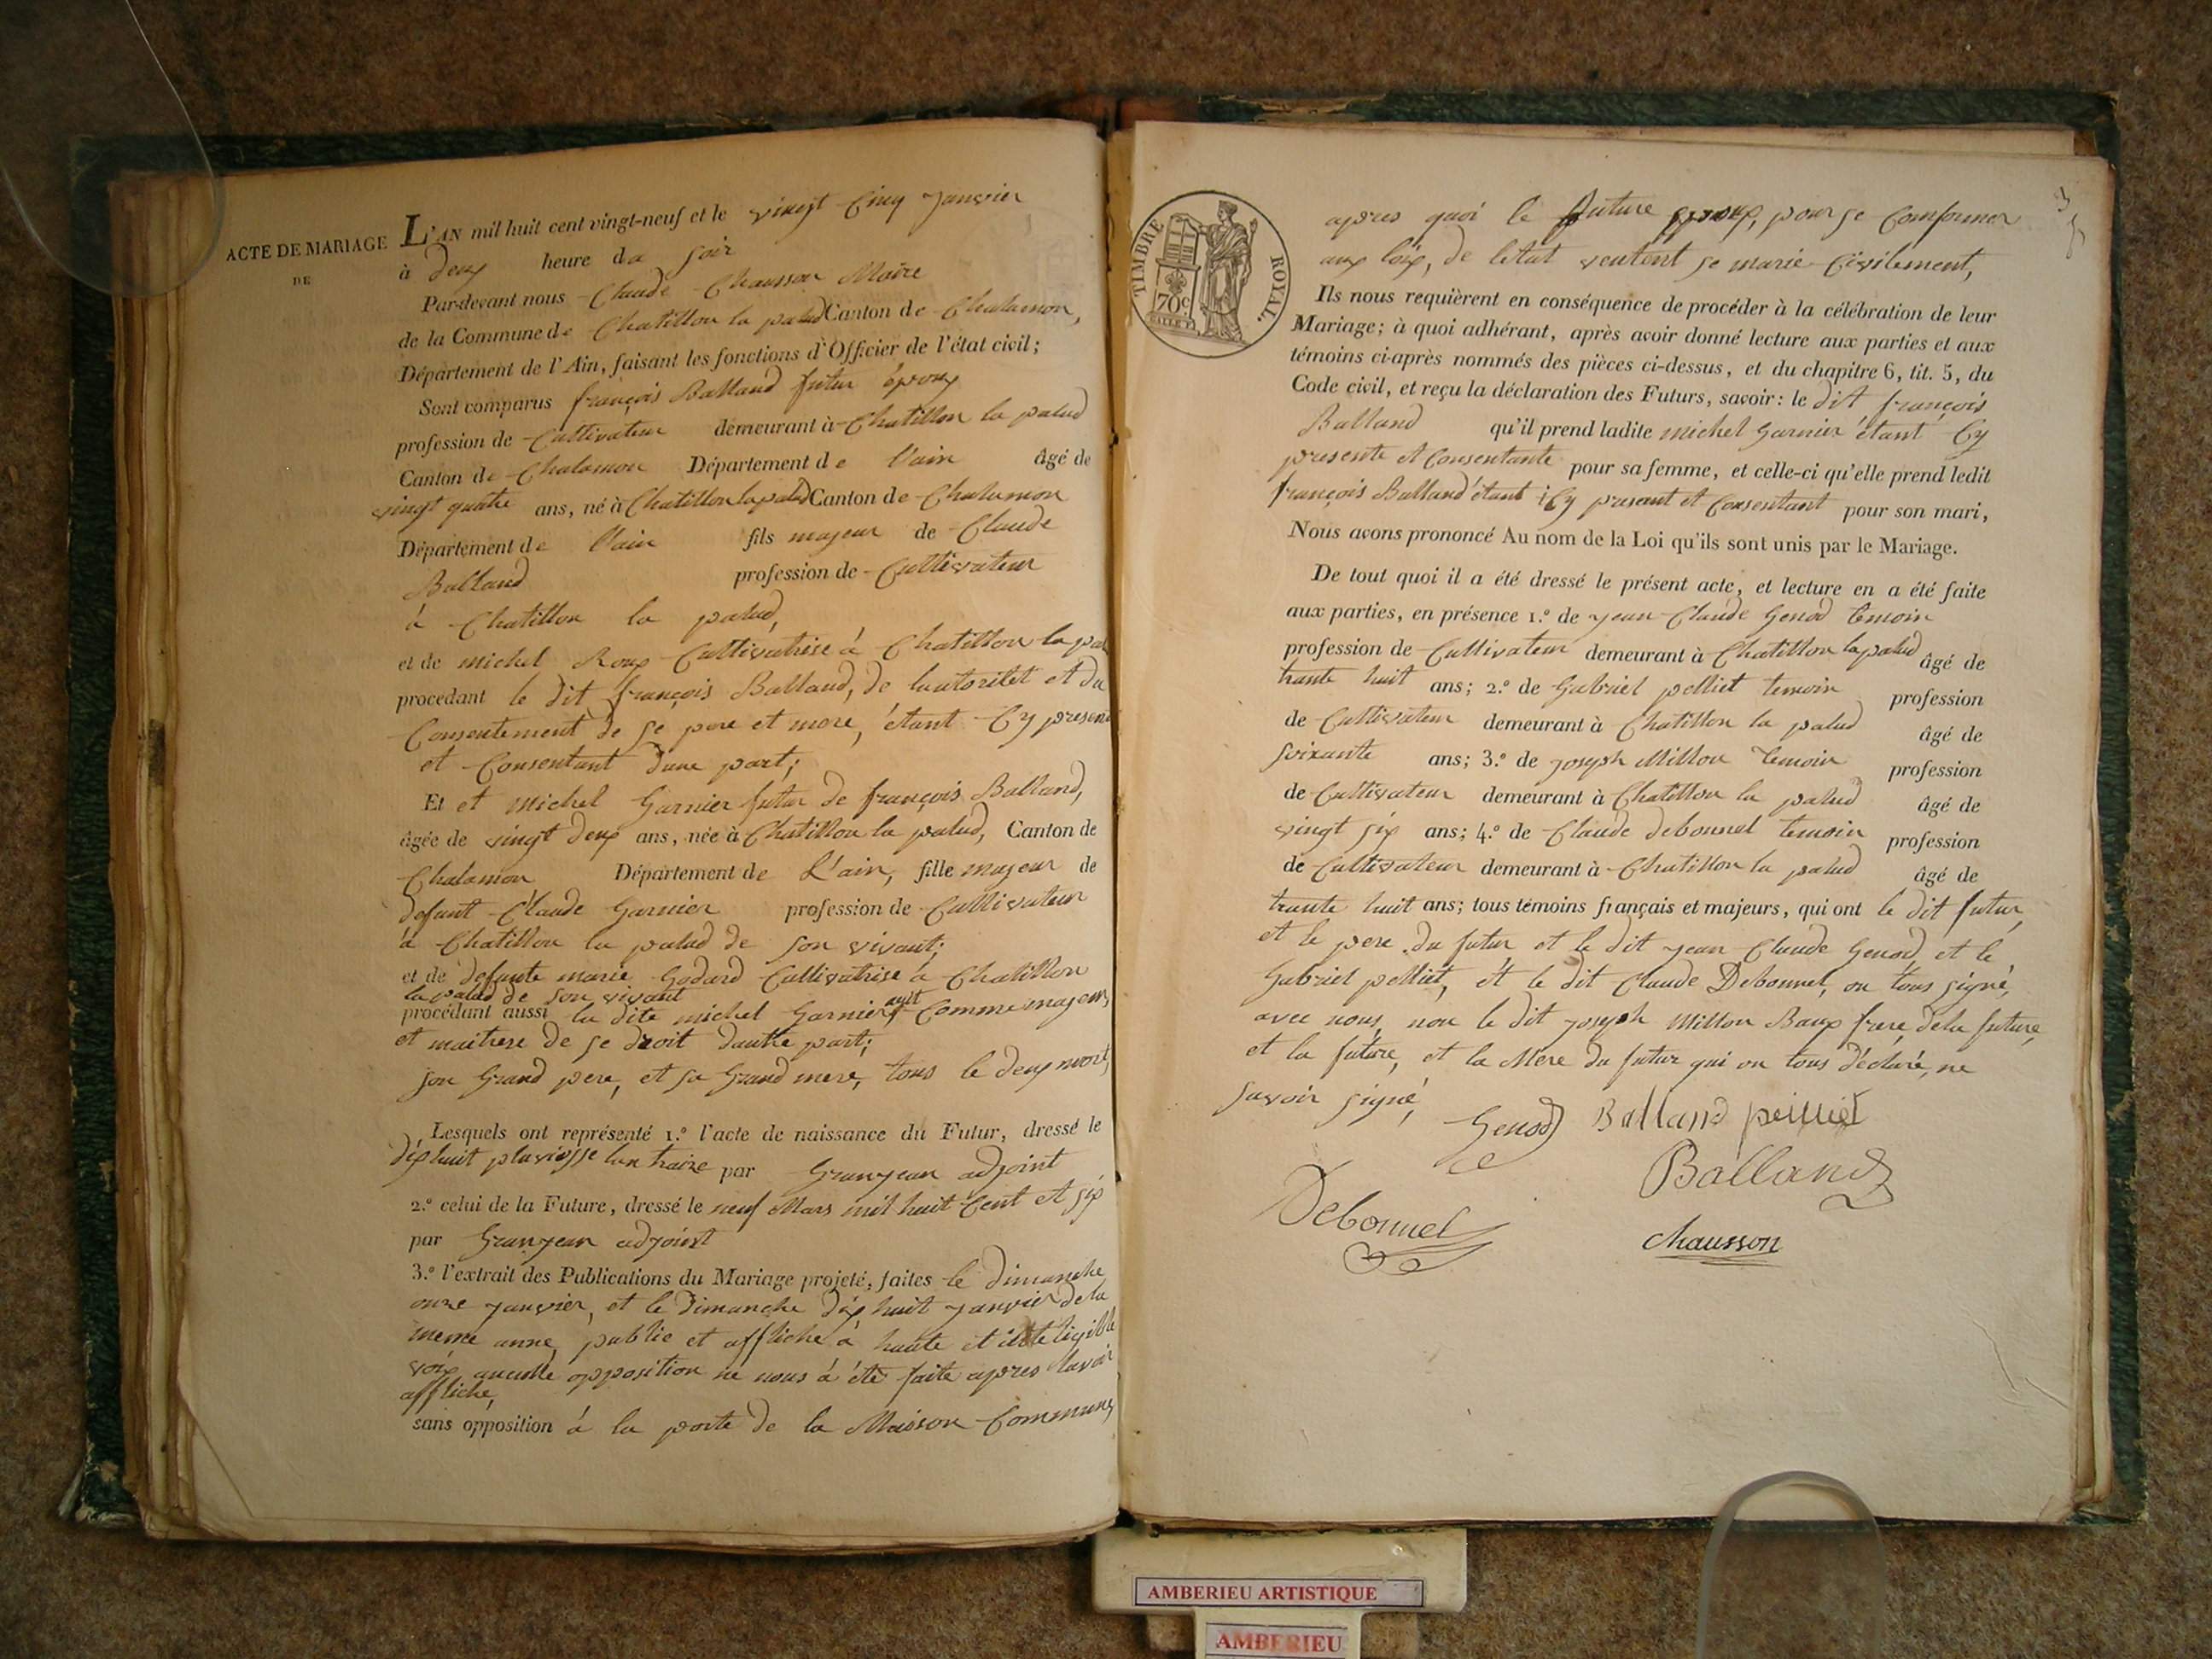 ACTE DE MARIAGE
DE
L'AN mil huit cent vingt-neuf et le vingt Cinq Janvier
à deux heure du soir
Par-devant nous Claude Chausson Maire
de la Commune de Chatillon la palud Canton de Chalamon,
Département de l'Ain, faisant les fonctions d'Officier de l'état civil;
Sont comparus françois Balland futur époux
profession de Cultivateur demeurant à Chatillon la palud
Canton de Chalamon Département de l'ain âgé de
vingt quatre ans, né à Chatillon la palud Canton de Chalamon
Département de l'ain fils majeur de Claude
Balland profession de Cultivateur
à Chatillon la palud,
et de michel Roux Cultivatrise à Chatillon la pal
procedant le dit françois Balland, de lautoritét et du
Consentement de se pere et mere, étant Cy presend
et Consentant dune part;
Et et Michel Garnier futur de françois Balland,
âgée de vingt deux ans, née à Chatillon la palud, Canton de
Chalamon Département de L'ain, fille majeur de
defunt Claude Garnier profession de Cultivateur
à Chatillon la palud de son vivant;
et de defunte marie Godard Cultivatrise à Chatillon
la palud de son vivant
procédant aussi la dite michel Garnier Comme majeur,
et maitrese de se droit dautre part;
son Grand pere, et sa Grand mere, tous le deux mort,
Lesquels ont représenté 1.º l'acte de naissance du Futur, dressé le
dix huit pluviosse lan traize par Granjean adjoint
2.º celui de la Future, dressé le neuf Mars mil huit Cent et six
par Granjean adjoint
3.º l'extrait des Publications du Mariage projeté, faites le dimanche
onze janvier, et le Dimanche dix huit janvier de la
meme anne, publié et affliché à haute et legible
voix aucune opposition ne nous à été faite apres lavoir
affliché,
sans opposition à la porte de la Maison Commune,
TIMBRE ROYAL.
70c
apres quoi le future epoux, pour se Conformer
aux loix, de letat veutent se marié Civilement,
Ils nous requièrent en conséquence de procéder à la célébration de leur
Mariage; à quoi adhérant, après avoir donné lecture aux parties et aux
témoins ci-après nommés des pièces ci-dessus, et du chapitre 6, tit. 5, du
Code civil, et reçu la déclaration des Futurs, savoir: le dit françois
Balland qu'il prend ladite michel Garnier étant Cy
presente et Consentante pour sa femme, et celle-ci qu'elle prend ledit
françois Balland étant iCy present et Consentant pour son mari,
Nous avons prononcé Au nom de la Loi qu'ils sont unis par le Mariage.
De tout quoi il a été dressé le présent acte, et lecture en a été faite
aux parties, en présence 1.º de jean Claude Genod temoin
profession de Cultivateur demeurant à Chatillon la palud âgé de
trante huit ans; 2.º de Gabriel pelliet temoin profession
de Cultivateur demeurant à Chatillon la palud âgé de
soixante ans; 3.º de joseph Millon temoin profession
de Cultivateur demeurant à Chatillon la palud âgé de
vingt six ans; 4.º de Claude debonnel temoin profession
de Cultivateur demeurant à Chatillon la palud âgé de
trante huit ans; tous témoins français et majeurs, qui ont le dit futur,
et le pere du futur et le dit jean Claude Genod, et le
Gabriel pelliet, et le dit Claude Debonnel, on tous signé,
avec nous, non le dit joseph Millon Baux frere, dela future,
et la future, et la Mere du futur qui on tous déclaré, ne
savoir signé,
Genod Balland peilliet
Balland
Debonnel
chausson
AMBERIEU ARTISTIQUE
AMBERIEU